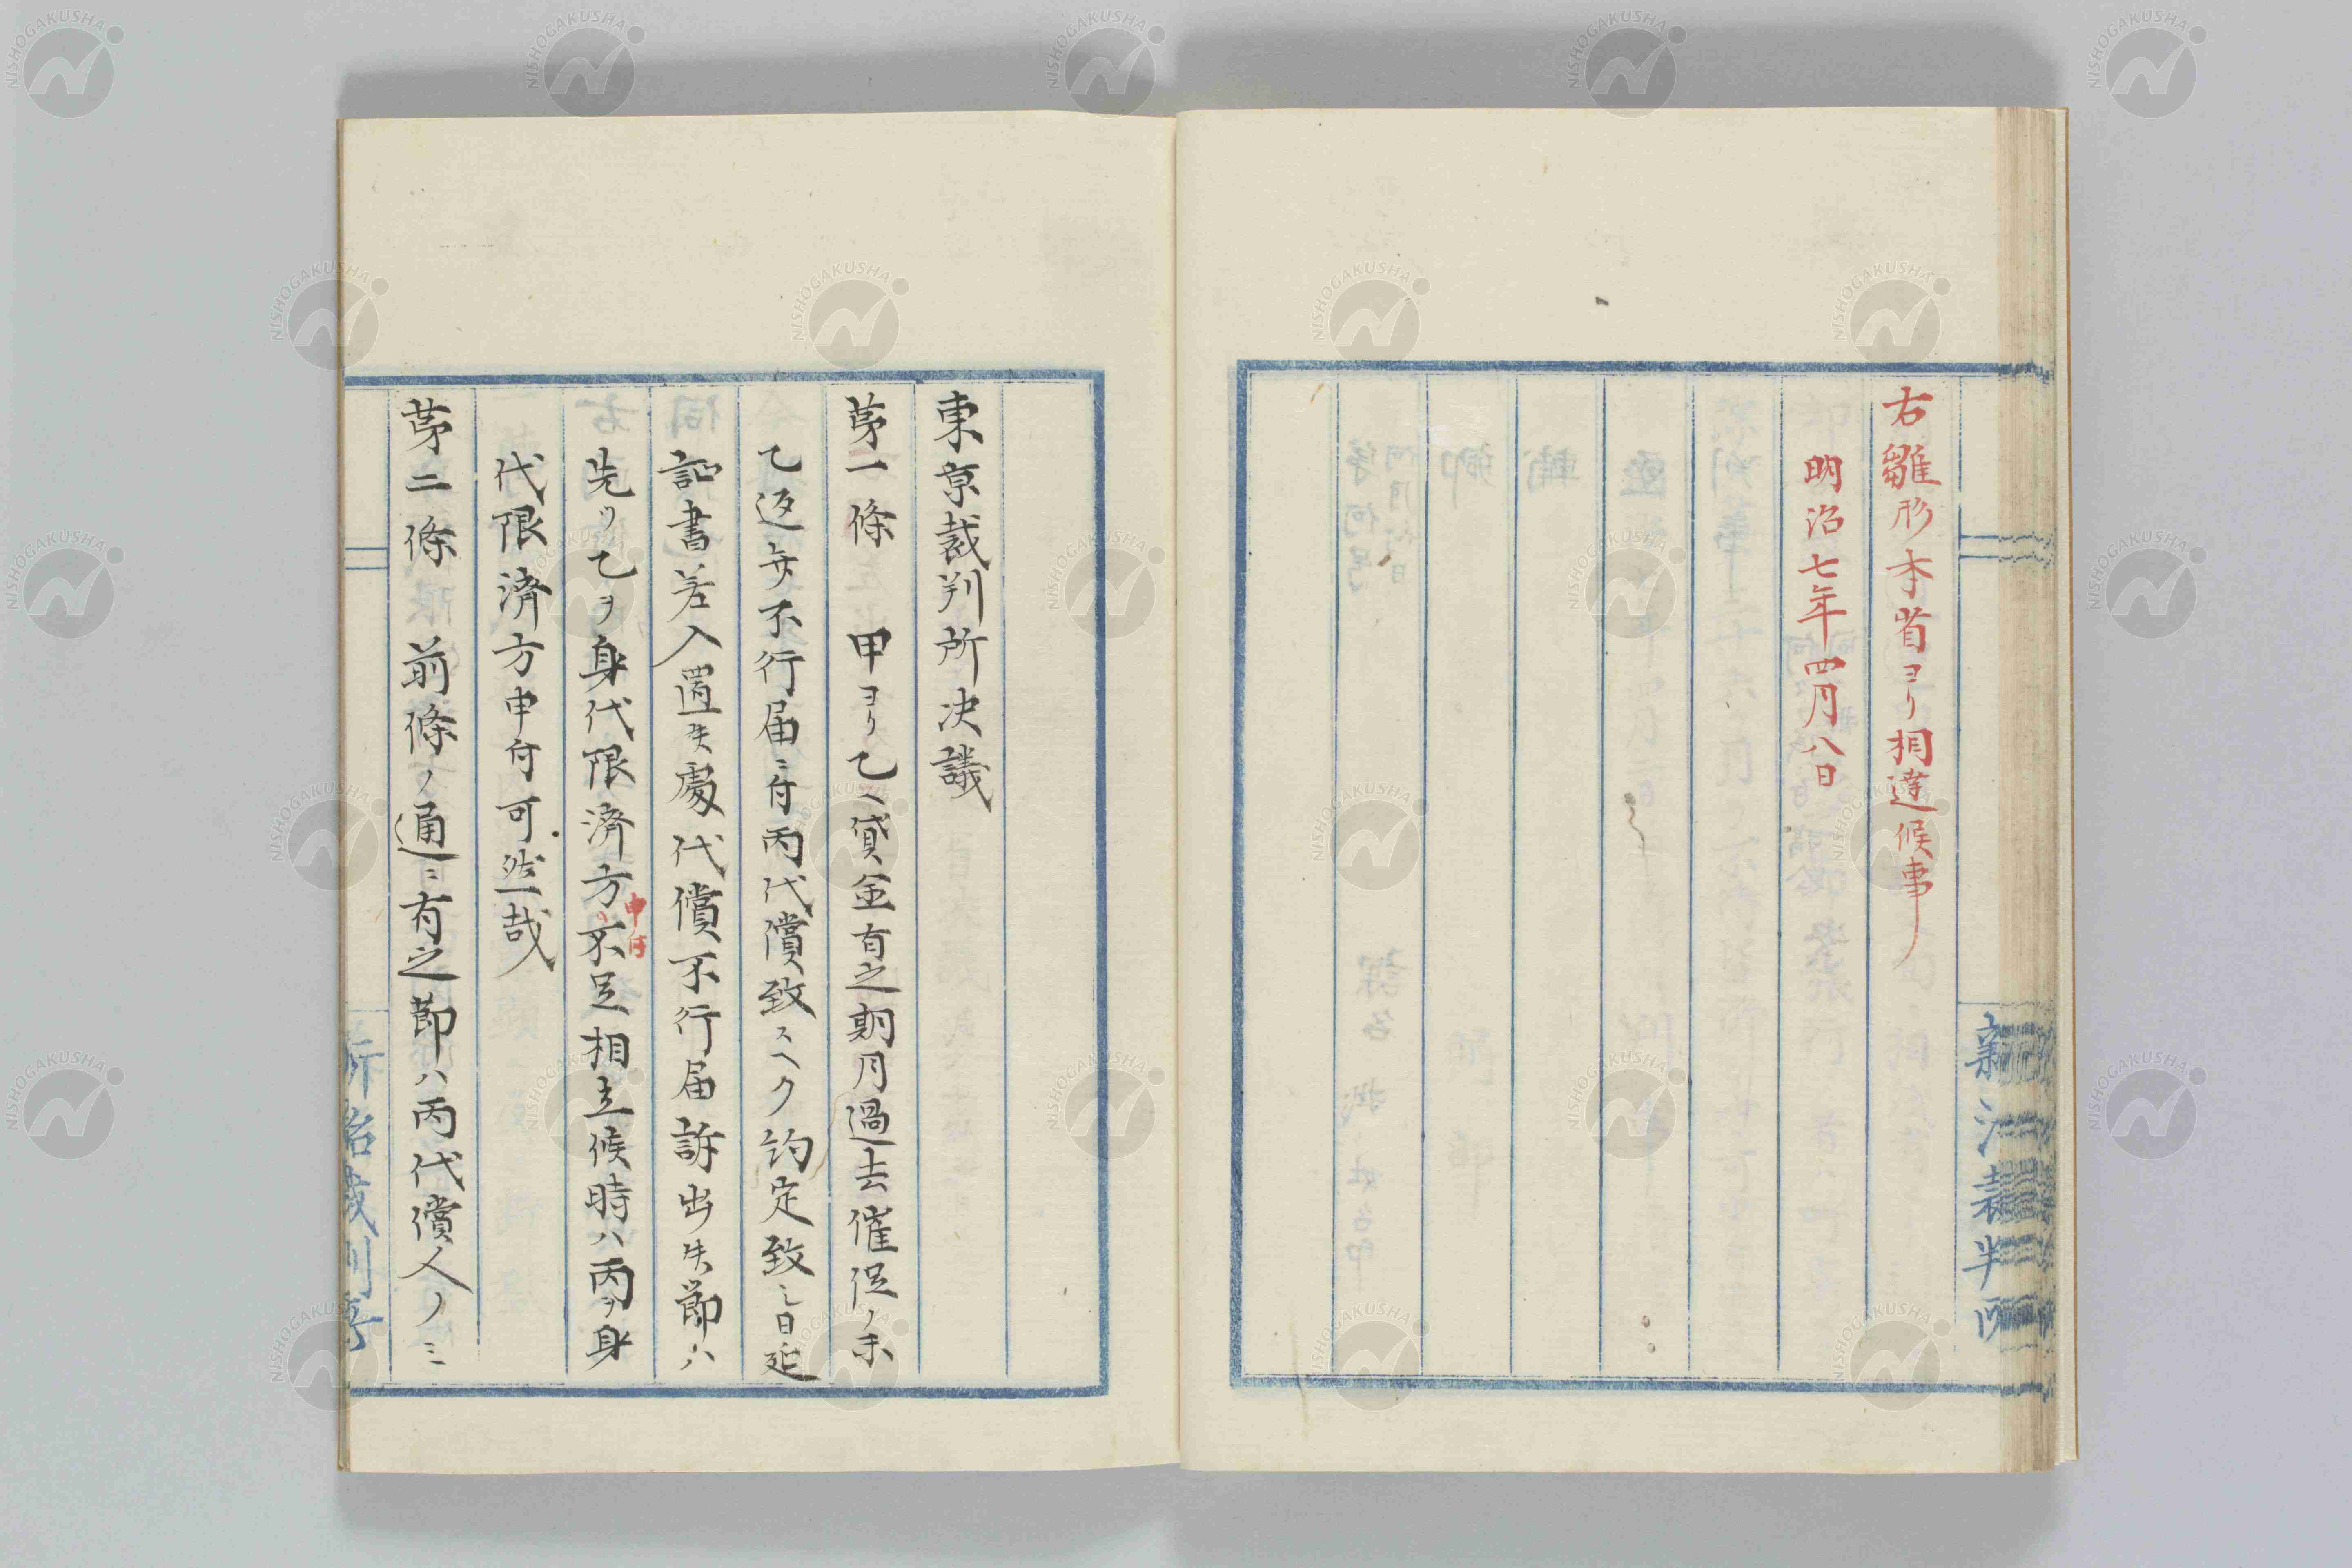 右雛形本省ヨリ相達候事
明治七年四月八日
新治裁判所
東京裁判所决議
第一條　甲ヨリ乙ヘ貸金有之期月過去催促ノ末
乙返弁不行届ニ付丙代償致スヘク約定致シ日延
証書差入置キ候處代償不行届訴出候節ハ
先ツ乙ヲ身代限済方申付不足相立候時ハ丙ヲ身
代限済方申付可然哉
第二條　前條ノ通ニ有之節ハ丙代償人ノミ
新治裁判所
NISHOGAKUSHA